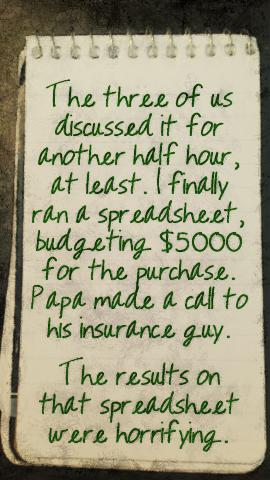 The three of us
discussed it for
another half hour,
at least. I finally
ran a spreadsheet,
budgeting $5000
for the purchase.
Papa made a call to
his insurance guy.
The results on
that spreadsheet
were horrifying.